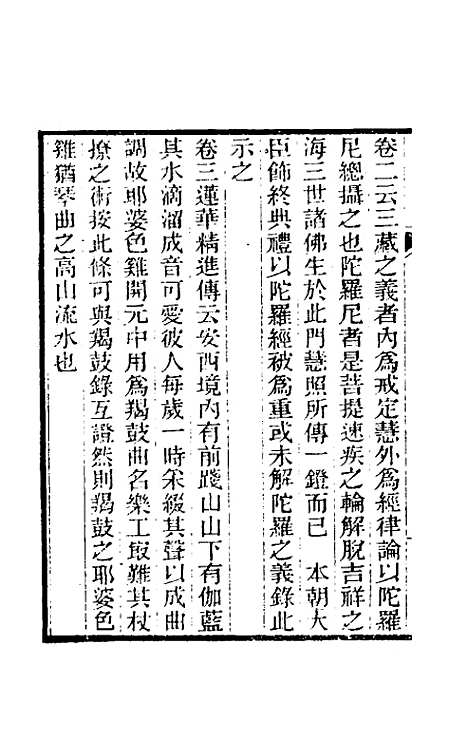 卷二云三藏之義者內爲戒定慧外爲經律論以陀羅
尼總攝之也陀羅尼者是菩提速疾之輪解脫吉祥之
海三世諸佛生於此門慧照所傳一鐙而已　本朝大
臣飾終典禮以陀羅經被爲重或未解陀羅之義錄此
示之
卷三蓮華精進傳云安西境內有前踐山山下有伽藍
其水滴溜成音可愛彼人每歲一時采綴其聲以成曲
調故耶婆色雞開元中用爲羯鼓曲名樂工最難其杖
撩之術按此條可與羯鼓錄互證然則羯鼓之耶婆色
雞猶琴曲之高山流水也